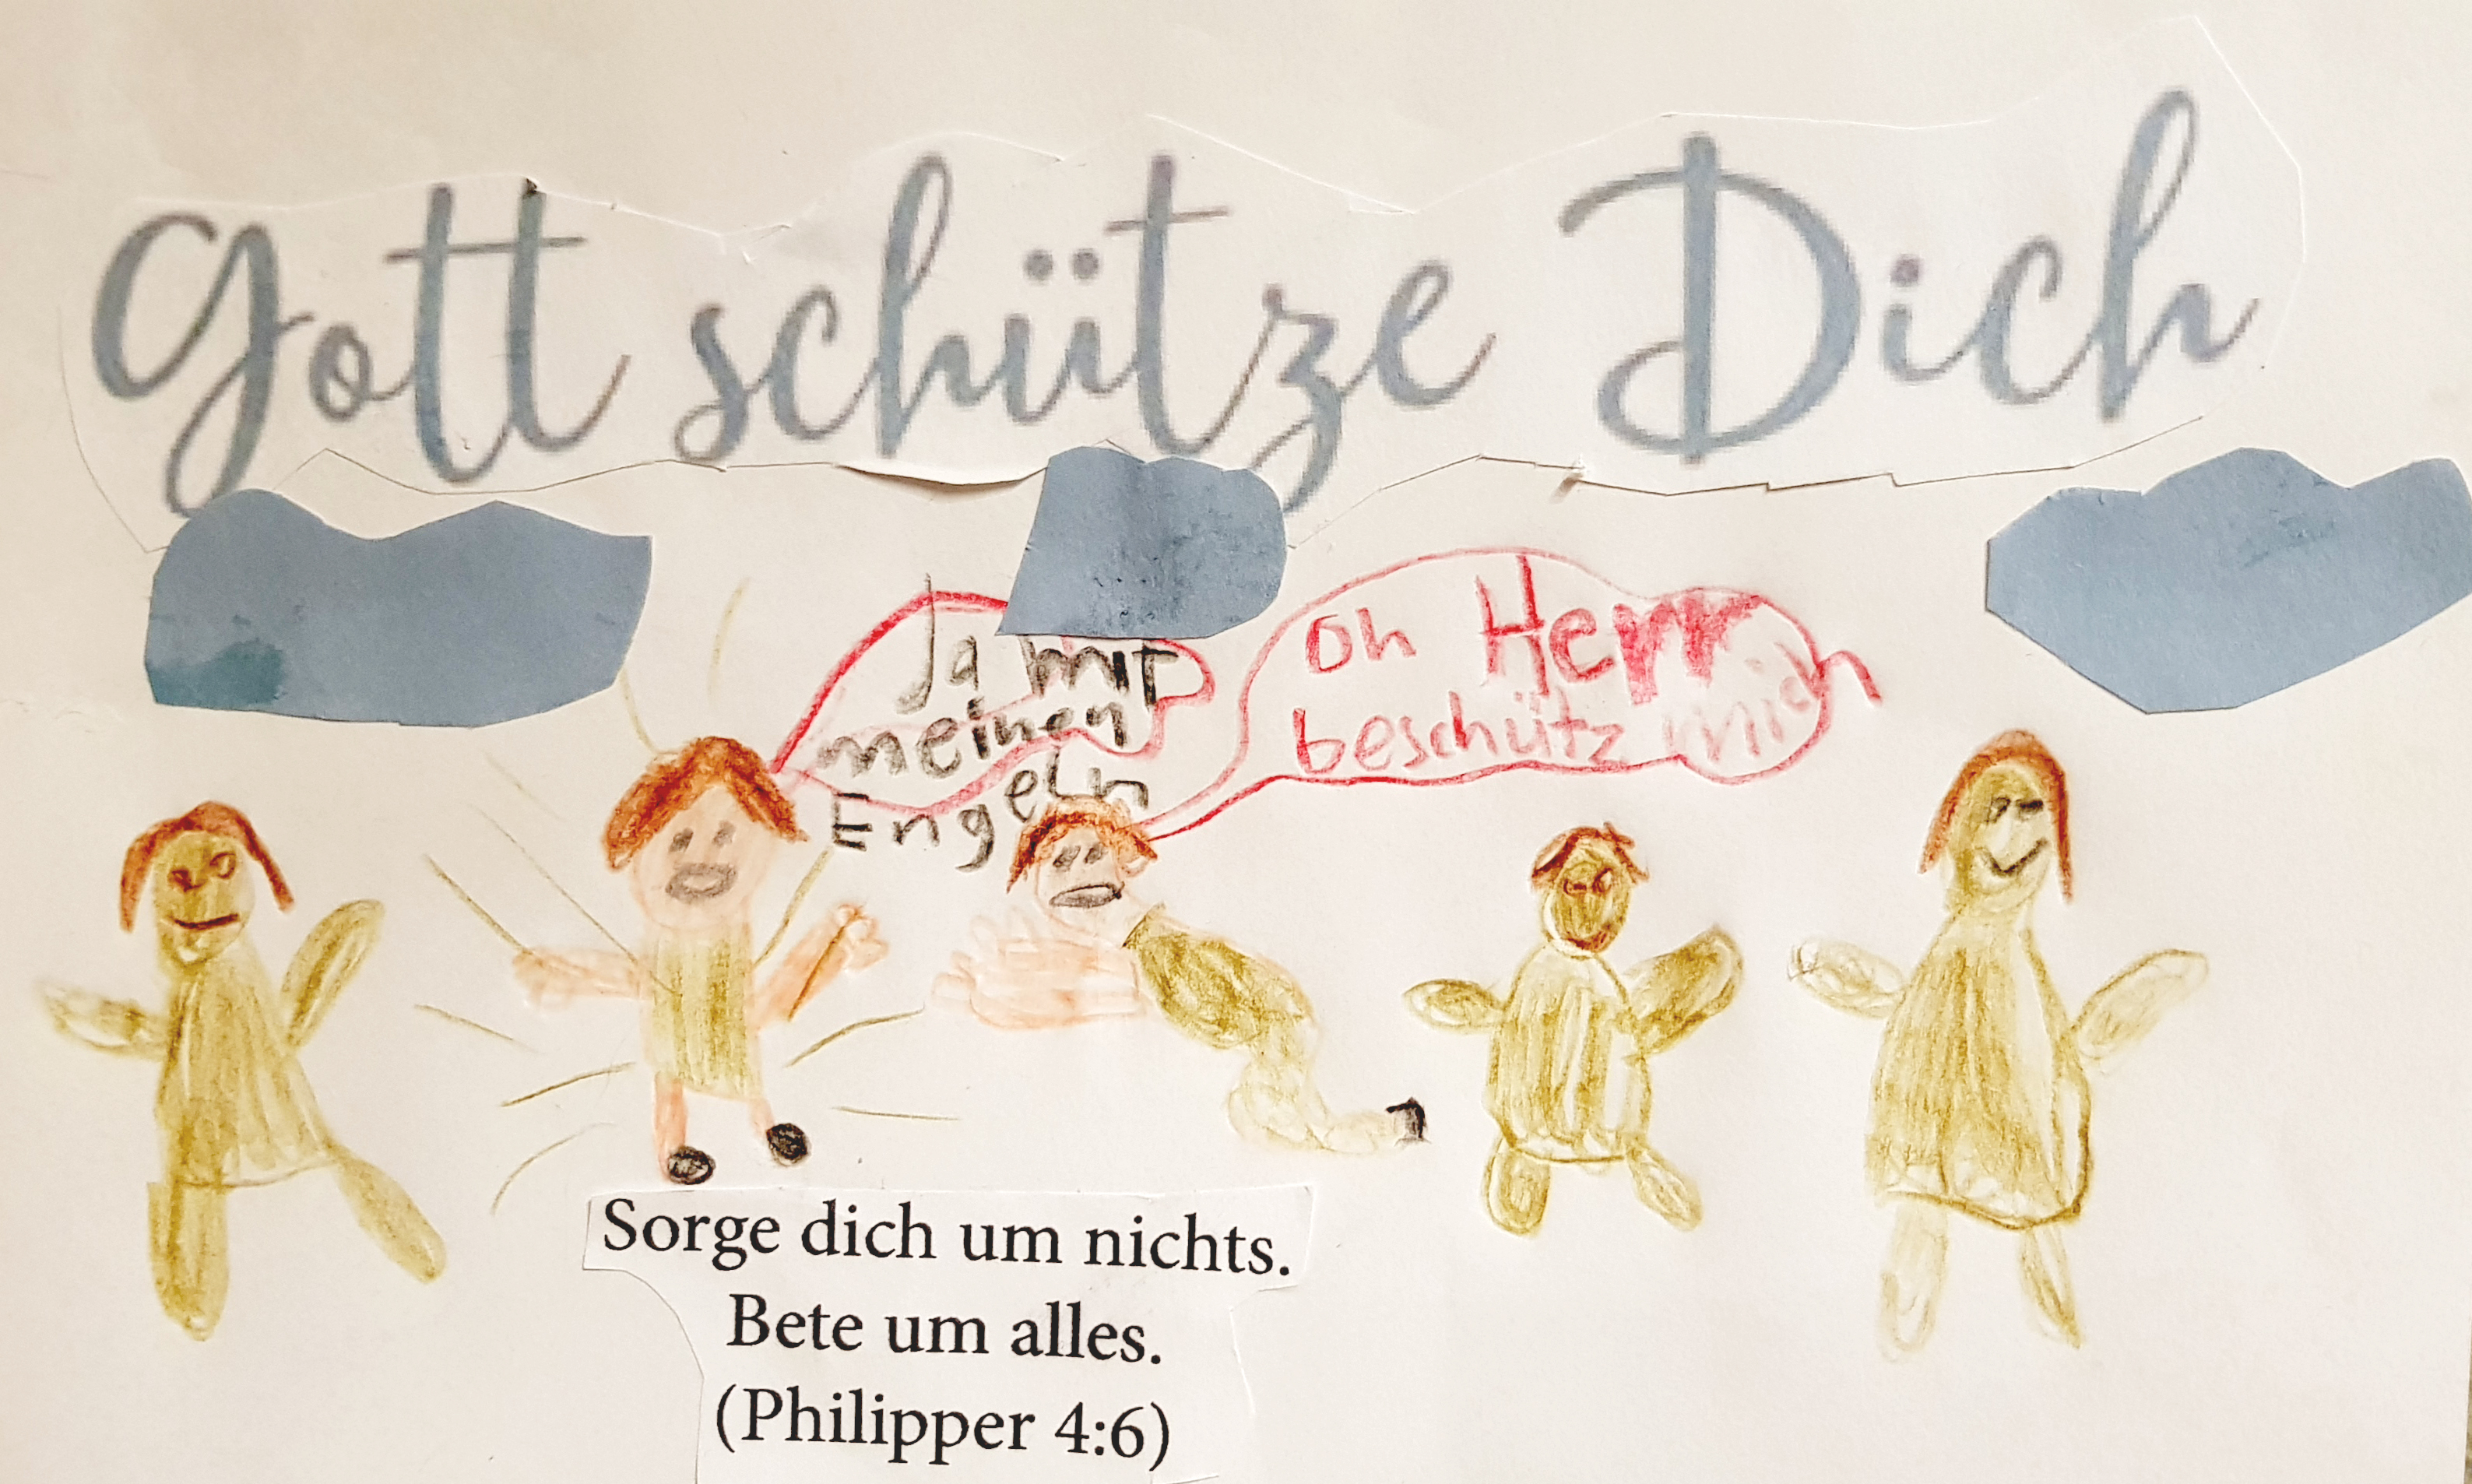 Gott schütze Dich
Ja mit
meinen
Engeln
Oh Herr
beschütz mich
Sorge dich um nichts.
Bete um alles.
(Philipper 4:6)